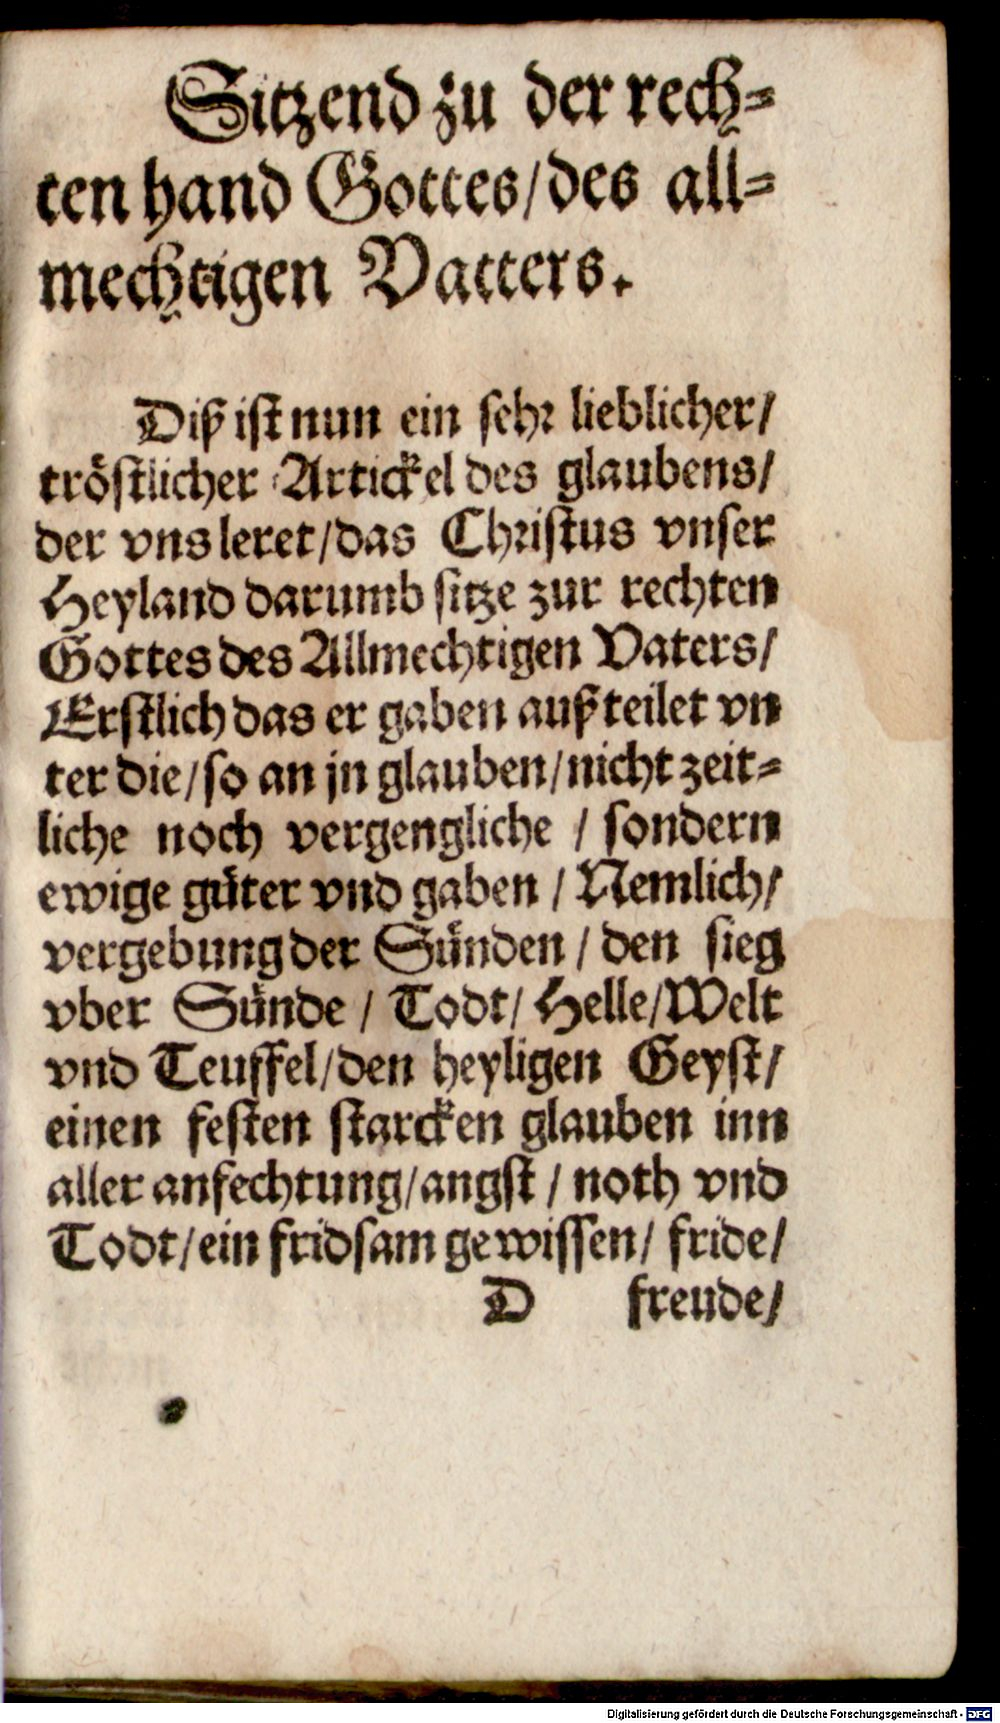 Sitzend zu der rech⸗
ten hand Gottes/des all⸗
mechtigen Vatters.
Diß ist nun ein sehr lieblicher/
tröstlicher Artickel des glaubens/
der vns leret/das Christus vnser
Heyland darumb sitze zur rechten
Gottes des Allmechtigen Vaters/
Erstlich das er gaben außteilet vn
ter die/so an jn glauben/nicht zeit⸗
liche noch vergengliche / sondern
ewige güter vnd gaben / Nemlich/
vergebung der Sünden / den sieg
vber Sünde / Todt/ Helle/Welt
vnd Teuffel/den heyligen Geyst/
einen festen starcken glauben inn
aller anfechtung/angst / noth vnd
Todt/ein fridsam gewissen/ fride/
D freude/
Digitalisierung gefördert durch die Deutsche Forschungsgemeinschaft - DFG